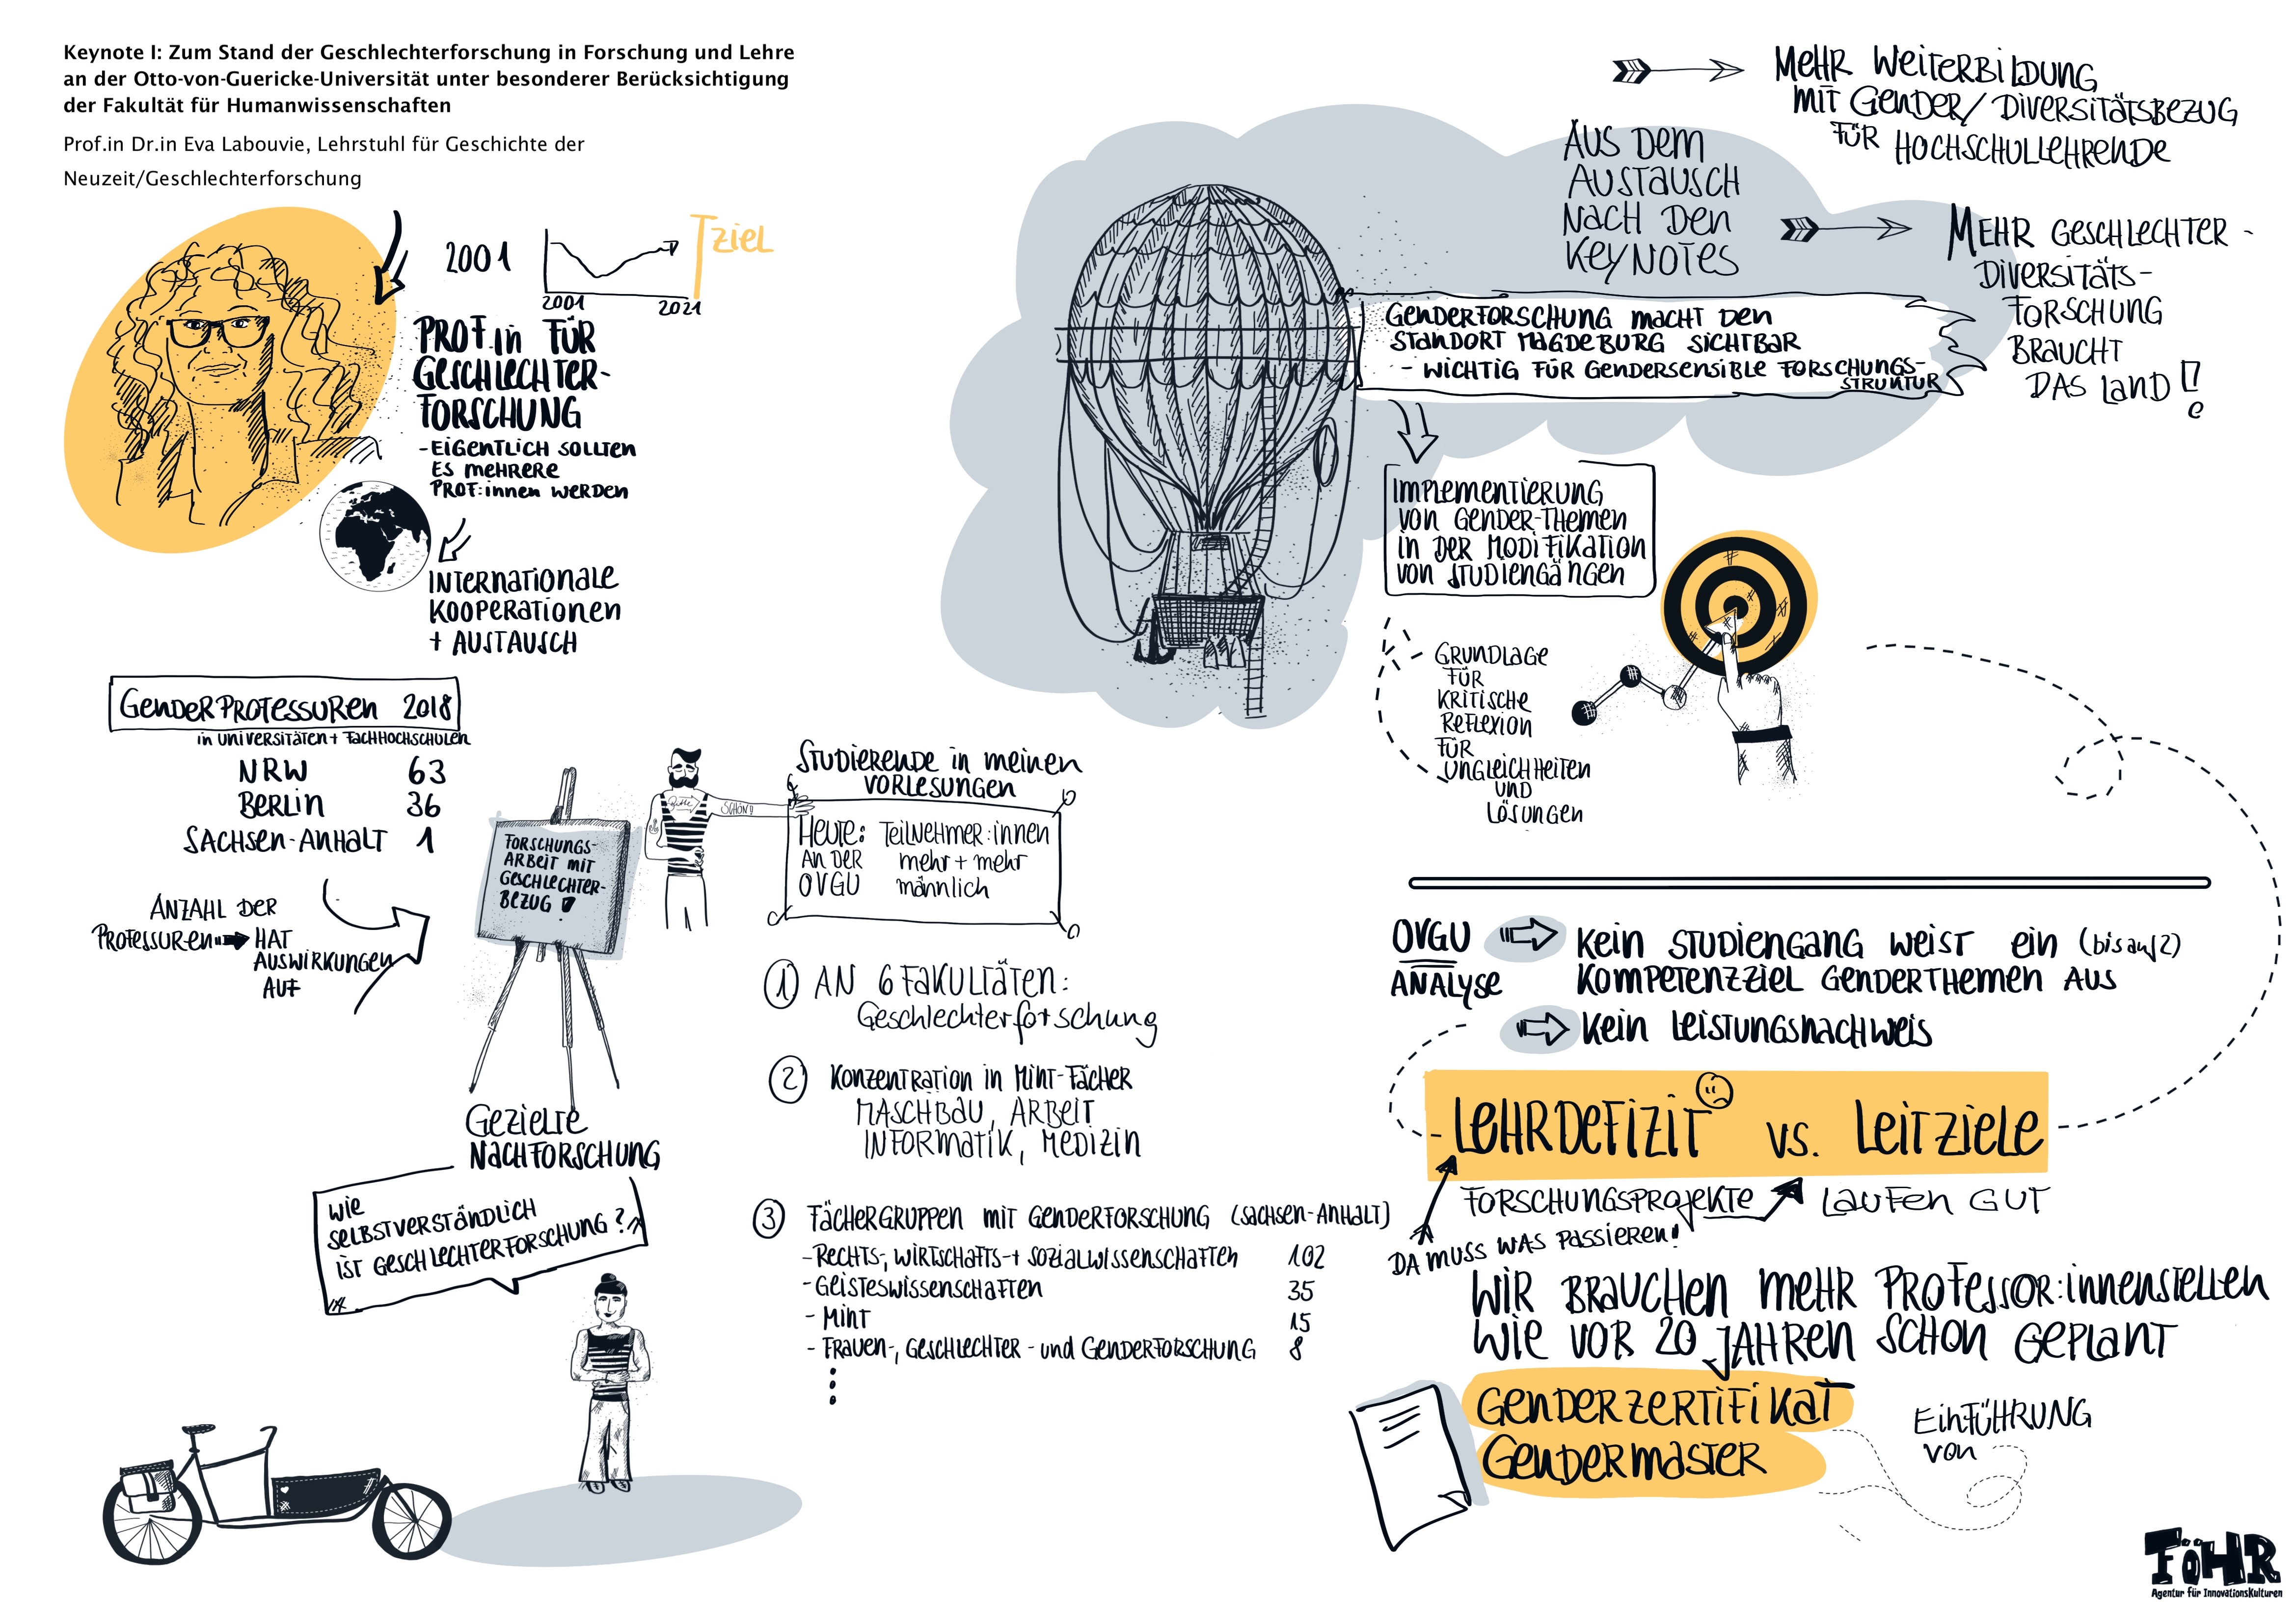 Keynote I: Zum Stand der Geschlechterforschung in Forschung und Lehre
an der Otto-von-Guericke-Universität unter besonderer Berücksichtigung
der Fakultät für Humanwissenschaften
Prof.in Dr.in Eva Labouvie, Lehrstuhl für Geschichte der
Neuzeit/Geschlechterforschung
2001
2001
2021
ZIEL
PROF.in FÜR
GESCHLECHTER-
FORSCHUNG
- EIGENTLICH SOLLTEN
ES MEHRERE
PROF:innen WERDEN
INTERNATIONALE
KOOPERATIONEN
+ AUSTAUSCH
GENDERPROFESSUREN 2018
in UNIVERSITÄTEN + FACHHOCHSCHULEN
NRW 63
BERLIN 36
SACHSEN-ANHALT 1
ANZAHL DER
PROFESSUREN HAT
AUSWIRKUNGEN
AUF
FORSCHUNGS-
ARBEIT MIT
GESCHLECHTER-
BEZUG !
Bitte
SCHÖN!
GEZIELTE
NACHFORSCHUNG
WIE
SELBSTVERSTÄNDLICH
IST GESCHLECHTERFORSCHUNG?
STUDIERENDE in meinen
VORLESUNGEN
HEUTE: TEILNEHMER:innen
AN DER mehr + mehr
OVGU männlich
1 AN 6 FAKULTÄTEN:
Geschlechterforschung
2 KONZENTRATION in MINT-FÄCHER
MASCHBAU, ARBEIT
INFORMATIK, MEDIZIN
3 FÄCHERGRUPPEN MIT GENDERFORSCHUNG (SACHSEN-ANHALT)
- RECHTS-, WIRTSCHAFTS-+ SOZIALWISSENSCHAFTEN 102
- GEISTESWISSENSCHAFTEN 35
- MINT 15
- FRAUEN-, GESCHLECHTER- und GENDERFORSCHUNG 8
AUS DEM
AUSTAUSCH
NACH DEN
KEYNOTES
MEHR WEITERBILDUNG
MIT GENDER/DIVERSITÄTSBEZUG
FÜR HOCHSCHULLEHRENDE
MEHR GESCHLECHTER-
DIVERSITÄTS-
FORSCHUNG
BRAUCHT
DAS LAND!
GENDERFORSCHUNG MACHT DEN
STANDORT MAGDEBURG SICHTBAR
- WICHTIG FÜR GENDERSENSIBLE FORSCHUNGS-
STRUKTUR
IMPLEMENTIERUNG
VON GENDER-THEMEN
IN DER MODIFIKATION
VON STUDIENGÄNGEN
GRUNDLAGE
FÜR
KRITISCHE
REFLEXION
FÜR
UNGLEICHHEITEN
UND
LÖSUNGEN
OVGU
ANALYSE
KEIN STUDIENGANG WEIST EIN (bis auf 2)
KOMPETENZZIEL GENDERTHEMEN AUS
KEIN LEISTUNGSNACHWEIS
LEHRDEFIZIT vs. LEITZIELE
FORSCHUNGSPROJEKTE LAUFEN GUT
DA MUSS WAS PASSIEREN!
WIR BRAUCHEN MEHR PROFESSOR:innenstellen
WIE VOR 20 JAHREN SCHON GEPLANT
GENDERZERTIFIKAT
GENDERMASTER
EINFÜHRUNG
von
FÖHR
Agentur für InnovationsKulturen